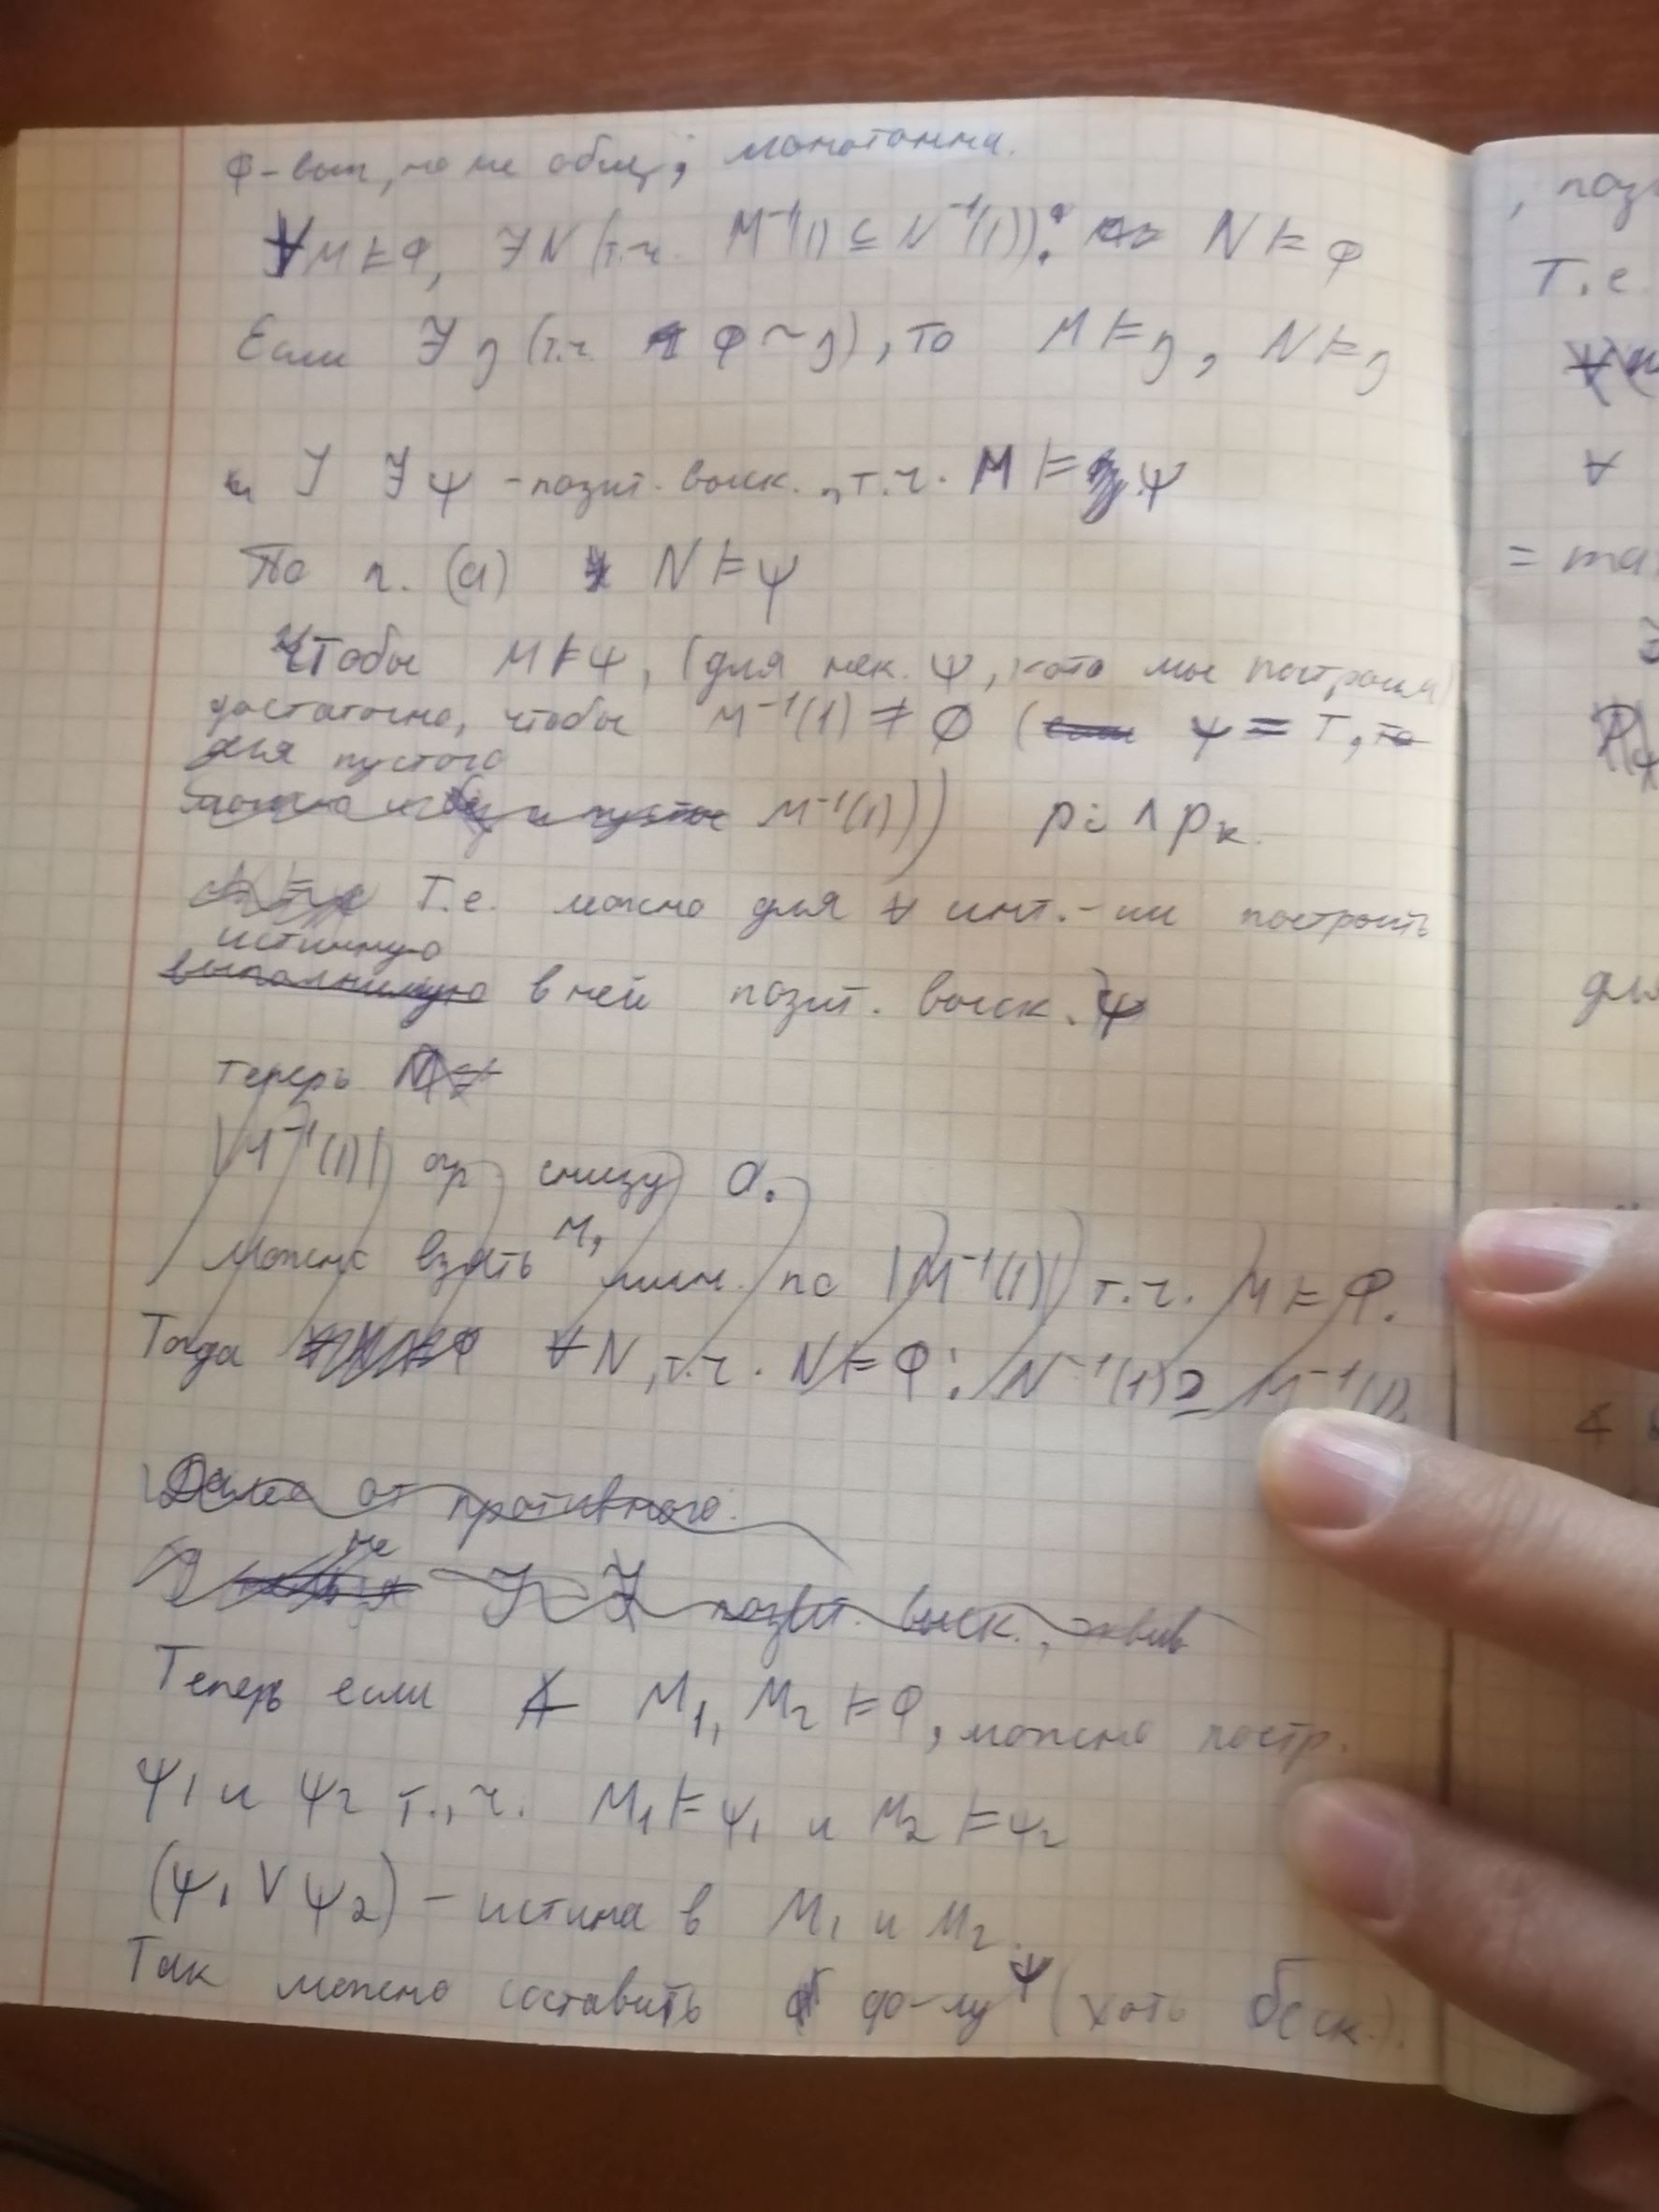 φ - вып, но не общ, монотонна.
∀M ⊨ φ, ∃N (т.ч. M⁻¹(1) ⊆ N⁻¹(1)): N ⊨ φ
Если ∃ η (т.ч. φ ~ η), то M ⊨ η, N ⊨ η
∃ψ - позит. выск., т.ч. M ⊨ ψ
По п. (a) N ⊨ ψ
Чтобы M ⊨ ψ, (для нек. ψ, мы построим)
достаточно, чтобы M⁻¹(1) ≠ ∅ ( ψ = T,
для пустого
M⁻¹(1)) pᵢ ∧ pₖ.
Т.е. можно для ∀ инт.-ии построить
истинную
выполнимую в ней позит. выск. ψ
теперь
|M⁻¹(1)| огр снизу 0.
можно взять M, мин. по |M⁻¹(1)| т.ч. M ⊨ φ.
Тогда ∀N, т.ч. N ⊨ φ: N⁻¹(1) ⊇ M⁻¹(1)
Далее от противного.
не
∃ позит. выск.,
Теперь если M₁, M₂ ⊨ φ, можно постр.
ψ₁ и ψ₂ т.,ч. M₁ ⊨ ψ₁ и M₂ ⊨ ψ₂
(ψ₁ ∨ ψ₂) - истина в M₁ и M₂.
Так можно составить ф-лу ψ (хоть беск.).
, поз
Т.е.
∀
= ma
для